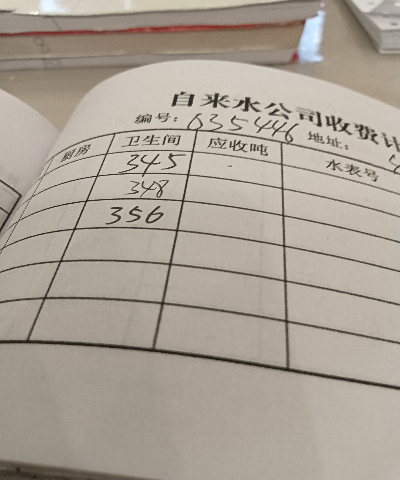 自来水公司收费计
编号: 035446 地址:
厨房 卫生间 应收吨 水表号
345
348
356